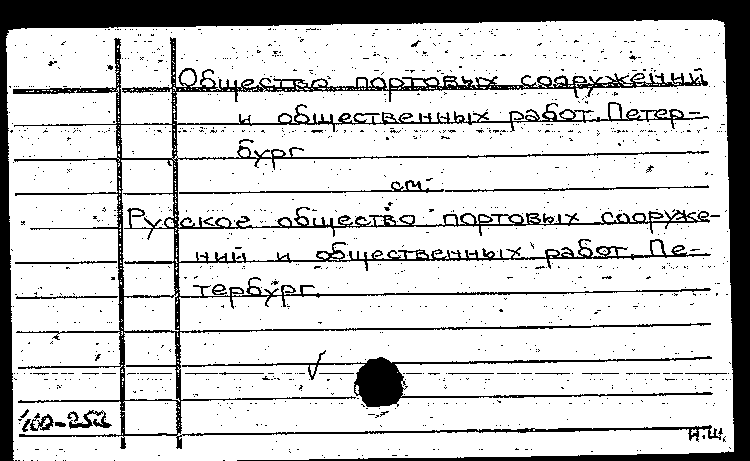 Общество портовых сооружений
и общественных работ. Петер-
бург
см.
Русское общество портовых сооруже-
ний и общественных работ. Пе-
тербург.
100-252
Н.Ш.